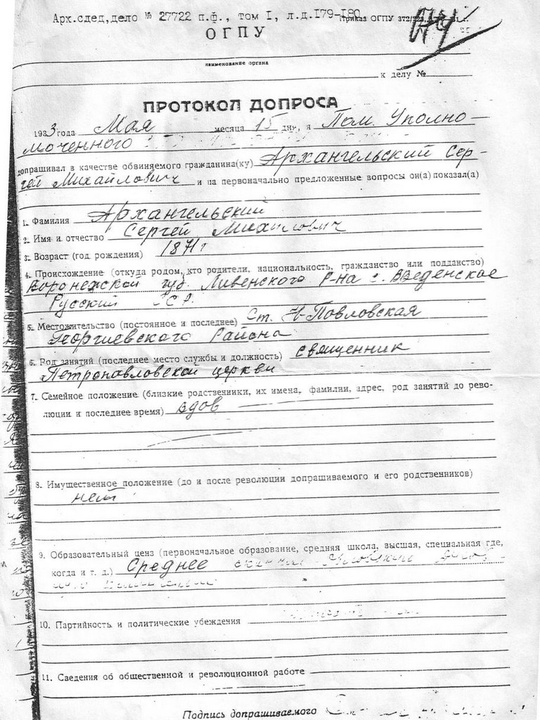 Арх.след,дело № 27722 п.ф., том I, л.д.I79-I80
Приказ ОГПУ
ОГПУ
наименование органа
к делу №
ПРОТОКОЛ ДОПРОСА
1933 года Мая месяца 15 дня, я Пом Уполно-
моченного
допрашивал в качестве обвиняемого гражданина(ку) Архангельский Сер-
гей Михайлович и на первоначально предложенные вопросы он(а) показал(а)
1. Фамилия Архангельский
2. Имя и отчество Сергей Михайлович
3. Возраст (год рождения) 1871 г
4. Происхождение (откуда родом, кто родители, национальность, гражданство или подданство)
Воронежской губ. Ливенского Р-на с. Введенское
Русский
5. Местожительство (постоянное и последнее) Ст. Н-Павловская
Георгиевского Района
6. Род занятий (последнее место службы и должность) священник
Петропавловской церкви
7. Семейное положение (близкие родственники, их имена, фамилии, адрес, род занятий до рево-
люции и последнее время) вдов
8. Имущественное положение (до и после революции допрашиваемого и его родственников)
нет
9. Образовательный ценз (первоначальное образование, средняя школа, высшая, специальная где,
когда и т. д.) Среднее
10. Партийность и политические убеждения
11. Сведения об общественной и революционной работе
Подпись допрашиваемого